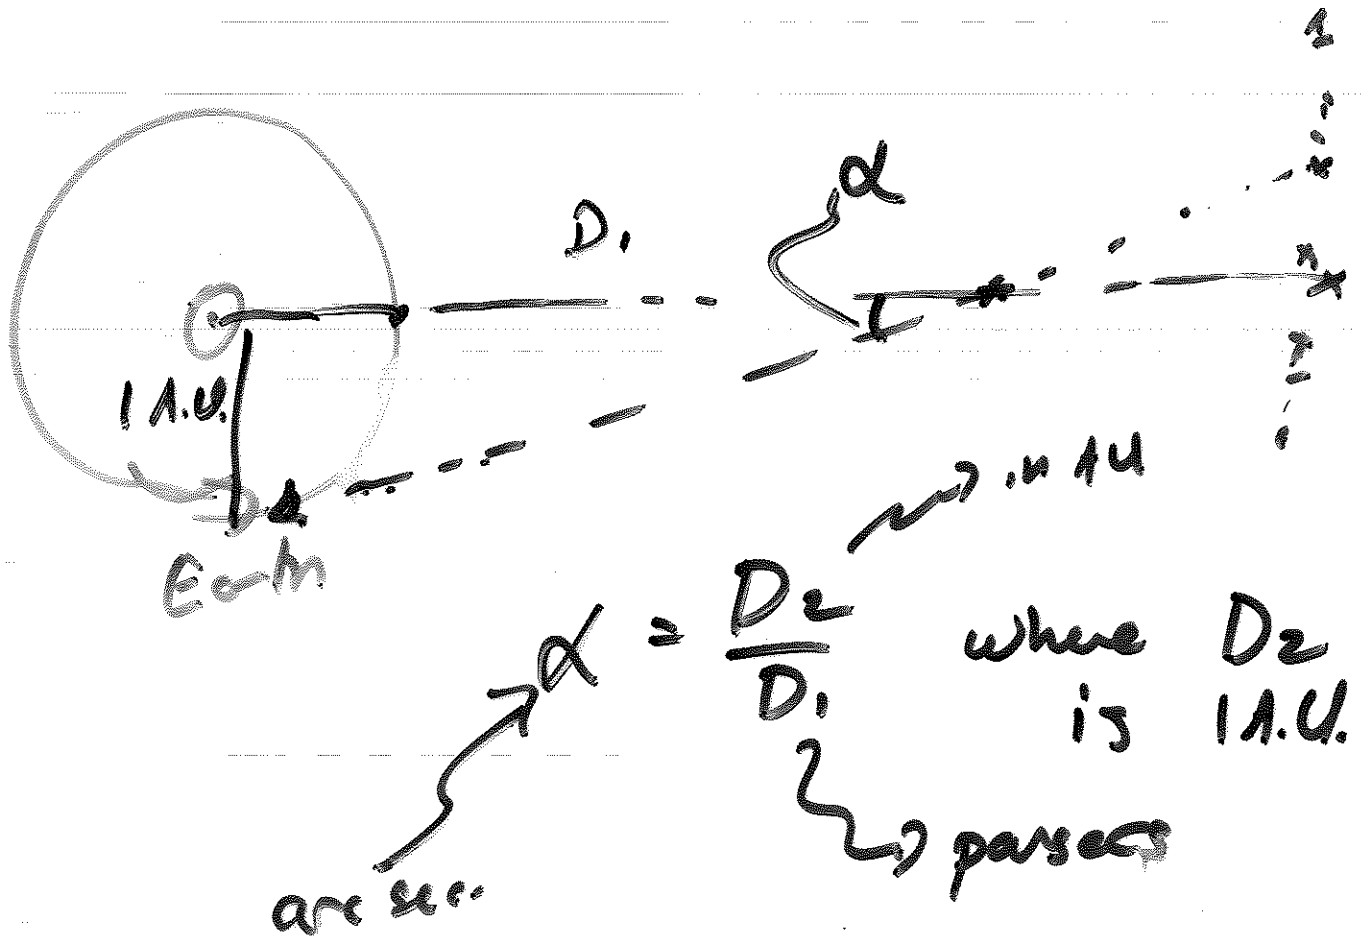 α
D₁
1 A.U.
Earth
in AU
α = D₂ / D₁ where D₂
is 1 A.U.
parsecs
arc sec.